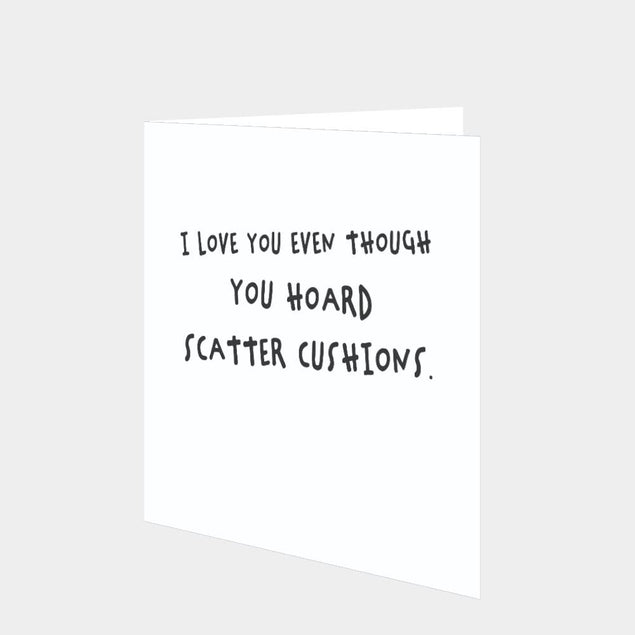 I LOVE YOU EVEN THOUGH
YOU HOARD
SCATTER CUSHIONS.